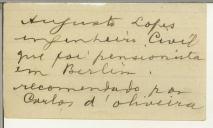 Augusto Lopes
engenheiro Civil
que foi pensionista
em Berlin.
recomendado por
Carlos d'Oliveira